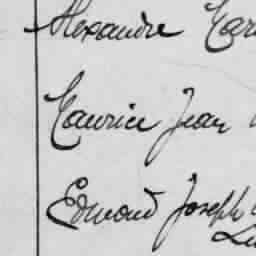 Alexandre
Maurice Jean
Edmond Joseph